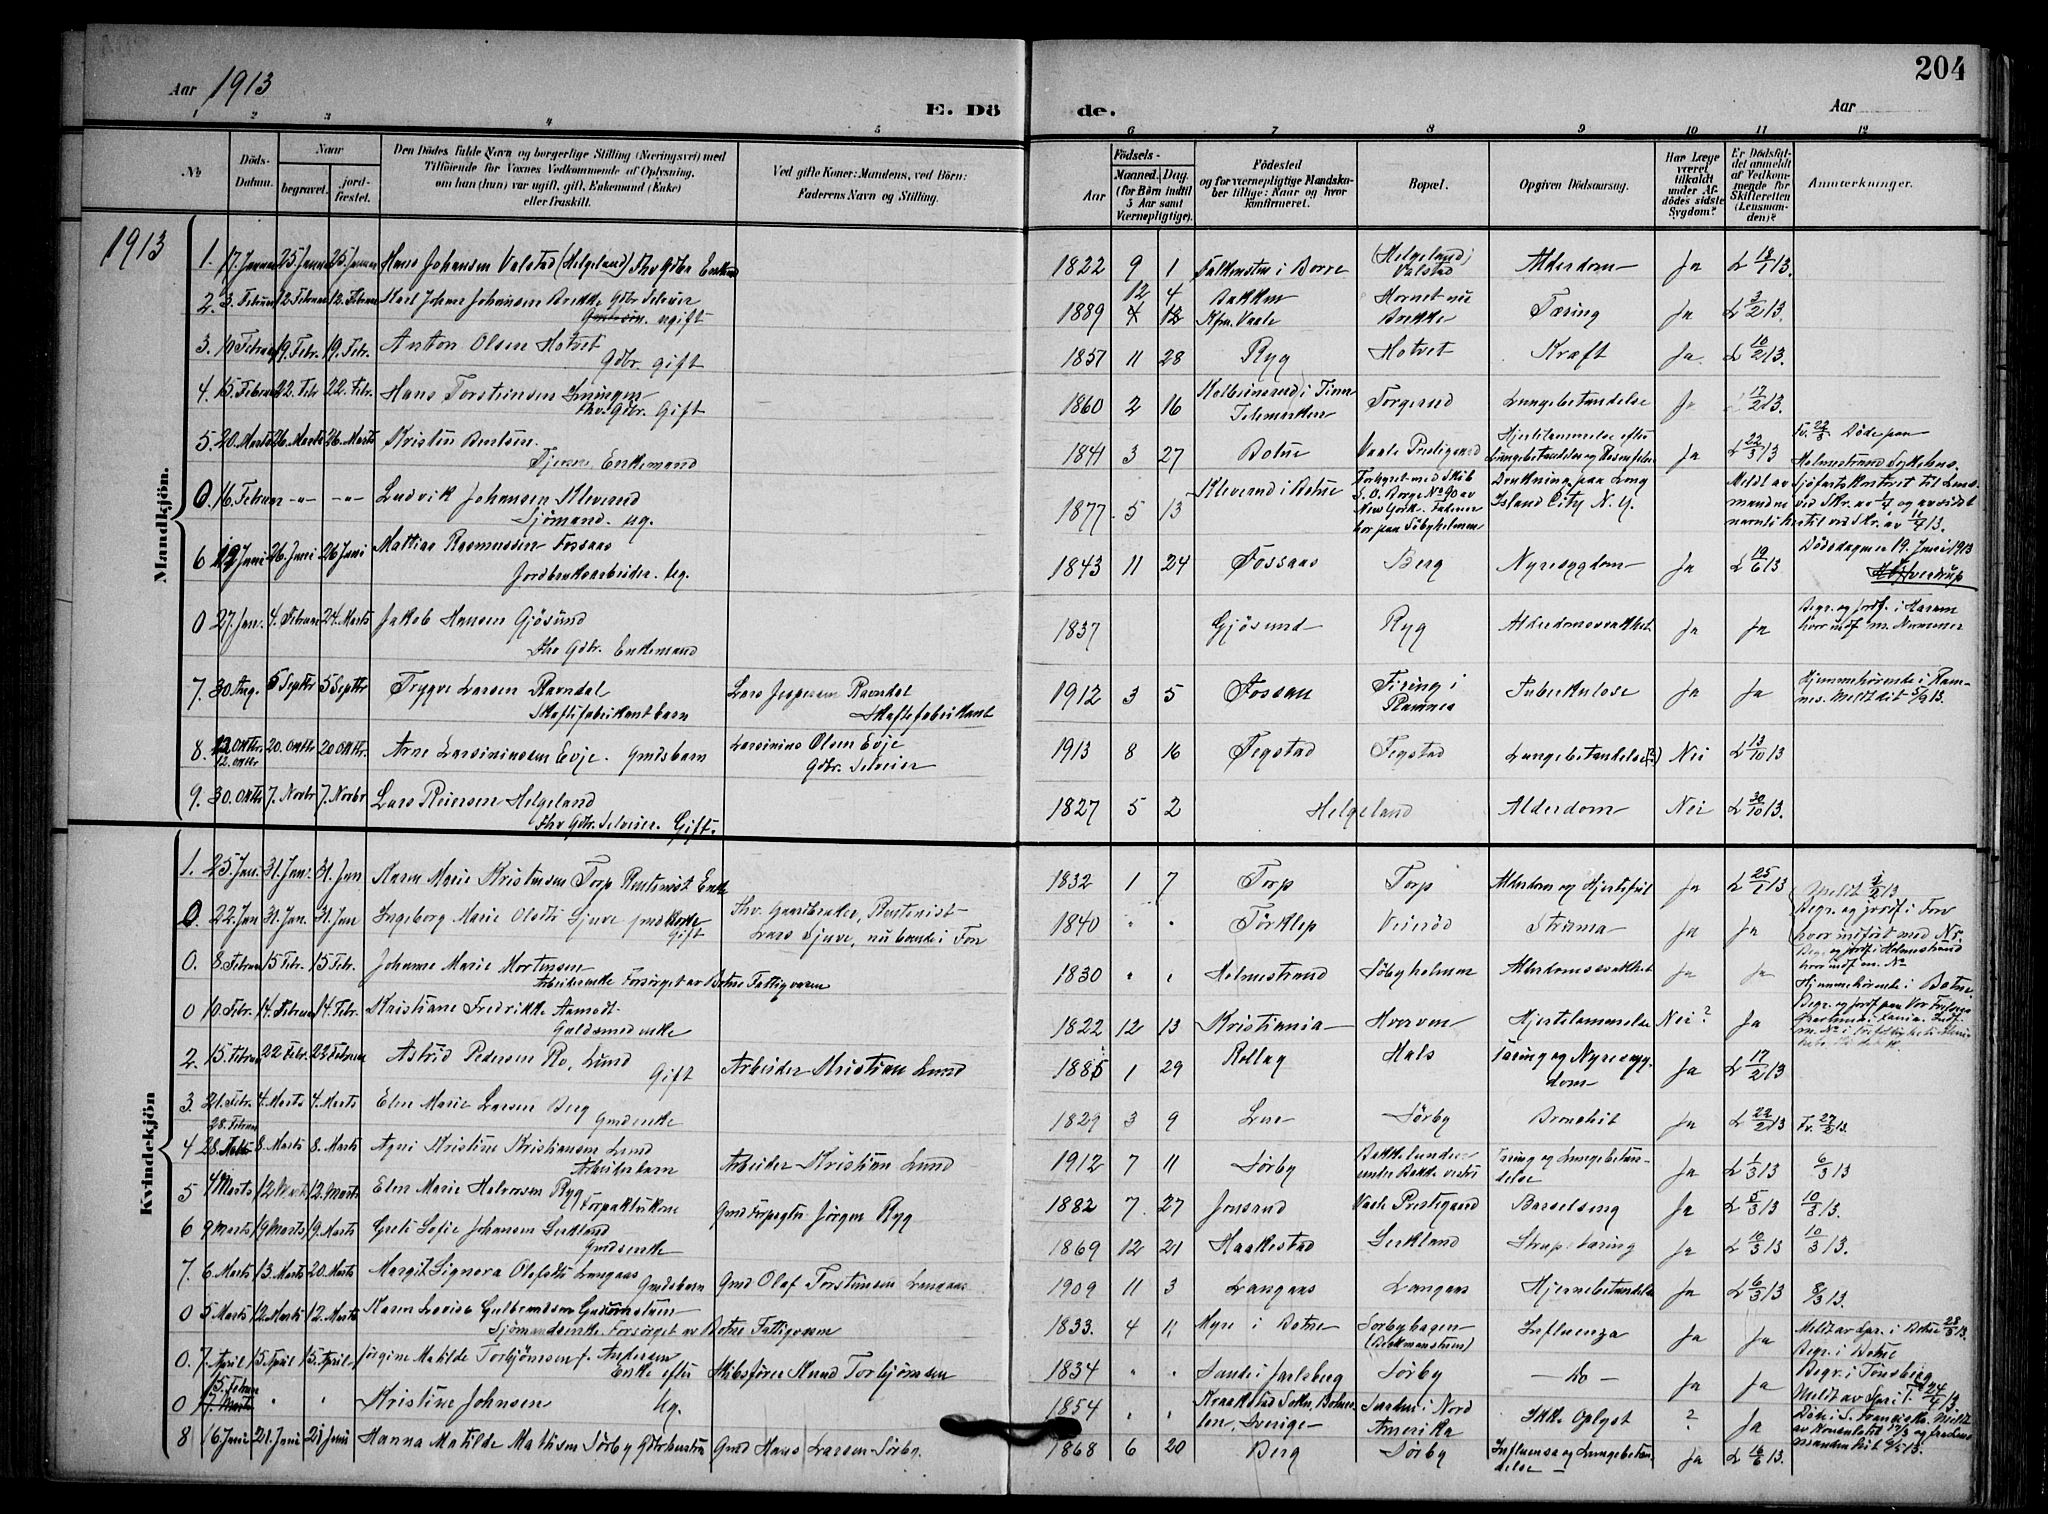 204
Aar 1913
E. Döde.
Aar
1 2 3 4 5 6 7 8 9 10 11 12
№
Döds-Datum.
Naar
begravet.
jordfæstet.
Den Dödes fulde Navn og borgerlige Stilling (Næringsvei) med
Tilföiende for Voxnes Vedkommende af Oplysning,
om han (hun) var ugift, gift, Enkemand (Enke)
eller fraskilt.
Ved gifte Koner: Mandens, ved Börn:
Faderens Navn og Stilling.
Födsels-
Aar
Maaned. Dag.
(for Börn indtil
3 Aar samt
Værnepligtige).
Födested
og for værnepligtige Mandskaber tillige: Naar og hvor
konfirmeret.
Bopæl.
Opgiven Dödsaarsag.
Har Læge
været
tilkaldt
under Afdödes sidste
Sygdom?
Er Dödsfaldet anmeldt
af Vedkommende for
Skifteretten
(Lensmanden)?
Anmærkninger.
1913
Mandkjön.
1. 17. Januar 25 Januar 25. Januar Hans Johansen Valstad (Helgeland) Fhv Gdbr Enkem 1822 9 1 Falkensten i Borre (Helgeland) Valstad Alderdom Ja L 18/1 13.
2. 3. Februar 12 Februar 12. Februar Karl Johan Johansen Brekke Gdbr Seleier ugift 1889 12 4 Bakken Kfm. Vaale Hornet nu Brekke Tæring Ja L 3/2 13.
3. 10 Februar 19 Febr. 19. Febr. Anton Olsen Hotvet Gdbr. gift 1851 11 28 Ryg Hotvet Kræft Ja. L 10/2 13.
4. 15. Februar 22. Febr 22. Febr. Hans Torstensen Fhv. Gdbr. Gift 1860 2 16 i Tinn Telemarken Lungebetændelse Ja 17/2 13.
5. 20. Marts 26. Marts 26. Marts Kristen Bentsen. Tjener Enkemand 1841 3 27 Botne Vaale Prestegaard Hjertelammelse efter Lungebetændelse og Ja L 22/3 13 Fv. 22/3 Döde paa Holmestrand Sykehus.
0 16. Februar -„- -„- Ludvik Johansen Kleverud Sjömand. Ug. 1877. 5 13 Kleverud i Botne New York. Faderen bor paa Söbyholmen Drukning paa Long Island City N. Y.
6 19 Juni 26. Juni 26 Juni Mattias Rasmussen Fossaas Jordbruksarbeider. Ug. 1843 11 24 Fossaas Berg Nyresygdom Ja L 19/6 13 Dödsdagen er 19. Juni 1913
0 27. Jan. 4. Februar 24. Marts Jakob Hansen Gjösund Fhv Gdbr. Enkemand 1837 Gjösund Ryg Alderdomssvakhet Ja Ja Begr. og jordf. i
7. 30. Aug. 5 Septbr 5 Septbr Trygve Larsen Ravndal Skaftefabrikantbarn Lars Jespersen Ravndal Skaftefabrikant 1912 3 5 Fossan i Ramnes Tuberkulose Ja Ja Hjemmehörende i Ramnes. Meldt dit 5/9 13.
8. 12. Oktbr. 20. Oktbr 20 Oktbr. Arne Larsiniussen Evje. Gmdsbarn Larsinius Olsen Evje Gdbr. Seleier 1913 8 16 Fegstad Fegstad Lungebetændelse (?) Nei L 13/10 13
9. 30. Oktbr 7. Novbr 7. Novbr Lars Reiersen Helgeland Fhv Gdbr. Seleier. Gift. 1827 5 2 Helgeland Alderdom Nei L 30/10 13.
Kvindekjön
1. 25. Jan. 31. Jan. 31. Jan Karen Marie Kristensen Torp Rentenist Enke 1832 1 7 Torp Torp Alderdom og Hjertefeil Ja L 25/1 13
0. 22. Jan 31. Jan. 31. Jan Ingeborg Marie Olsdtr Sjuve Gift Fhv. Gaardbruker, Rentenist Lars Sjuve, nu boende i Fon 1840 " " Törklep Veieröd Struma Ja Ja Meldt 1/2 13 Begr. og jordf. i Fon hvor indfört med Nr.
0. 8. Februar 15 Febr. 15 Febr. Johanne Marie Mortensen Arbeiderenke Forsörget av Botne Fattigvæsen 1830 " " Holmestrand Söbyholmen Alderdomssvakhet Ja Ja Begr. og jordf. i Holmestrand hvor indf. m. Nr Hjemmehörende i Botne
0 10. Febr. 14. Februar 14. Febr. Kristiane Fredrikke Aamodt Guldsmedenke 1822 12 13 Kristiania Horven Hjertelammelse Nei? Ja
2. 15. Februar 22 Febr. 22 Februar Astrid Pedersen Ro, Lund Gift Arbeider Kristian Lund 1885 1 29 Rollag Hals Tæring og Nyresygdom Ja L 17/2 13
3. 21. Febr. 4. Marts 4. Marts Elen Marie Larsen Berg Gmdenke 1829 3 9 Lue Sörby Bronchit Ja L 22/2 13 Fv. 27/2 13.
4 28. Februar 8. Marts 8. Marts Agni Kristine Kristiansen Lund Arbeiderbarn Arbeider Kristian Lund 1912 7 11 Sörby Tæring og Lungebetændelse Ja L 1/3 13 6/3 13
5 4 Marts 12 Marts 12. Marts Elen Marie Halvorsen Ryg Forpakterkone Gmd Forpagter Jörgen Ryg 1882 7. 27 Jonsrud Vaale Prestegaard Barselseng Ja L 5/3 13 10/3 13.
6 9 Marts 19 Marts 19. Marts Grete Sofie Johansen Serkland Gmdsenke 1869 12 21 Haakestad Serkland Strupetæring Ja L 10/3 13 10/3 13.
7. 6. Marts 13. Marts 20. Marts Margit Signora Olafsdtr Langaas Gmdsbarn Gmd Olaf Torstensen Langaas 1909 11 3 Langaas Langaas Hjernebetændelse Ja L 6/3 13 8/3 13.
0 5 Marts 12 Marts 12. Marts Karen Lovise Gulbrandsen Sjömandsenke Forsörget av Botne Fattigvæsen 1833. 4 11 Myre i Botne Sörbyhagen Influenza Ja Ja Meldt av Spr. i Botne 28/3 13. Begr. i Botne
0. 7. April 15. April 15. April Jörgine Matilde Torbjörnsen f. Andersen Enke efter Skibsförer Knud Torbjörnsen 1834 " " Sande i Jarlsberg Sörby — Do — Ja Ja Begr. i Tönsberg
0 15. Februar " " Kristine Johnsen Ug. 1854 " " Sverige i Nord Amerika Ikke Oplyst ? Ja Döde i S. Francisko.
8 16 Juni 21. Juni 21 Juni Hanna Matilde Mathisen Sörby Gmd Hans Larsen Sörby. 1868 6 20 Berg Sörby Influensa og Lungebetændelse Ja L 16/6 13.